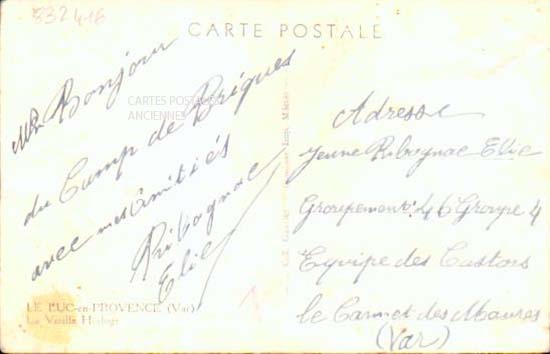 832416
CARTE POSTALE
Un Bonjour
du Camp de Brigues
avec mes amitiés
Ribagnac
Elie
CARTES POSTALES
ANCIENNES
LE LUC-en-PROVENCE (Var)
La Vieille Horloge
Adresse
Jeune Ribagnac Elie
Groupement: 46 Groupe 4
Equipe des Castors
le Cannet des Maures
(Var)